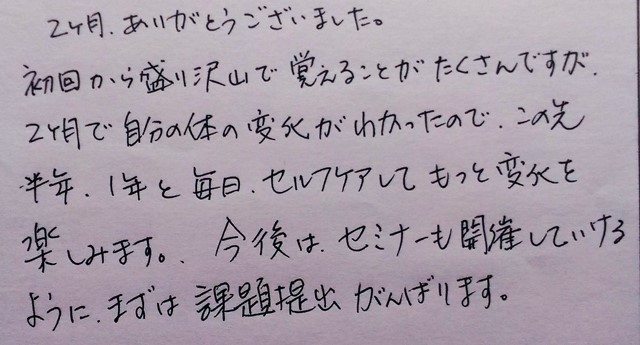 2ヶ月、ありがとうございました。
初回から盛り沢山で覚えることがたくさんですが、
2ヶ月で自分の体の変化がわかったので、この先
半年、1年と毎日、セルフケアしてもっと変化を
楽しみます。、今後は、セミナーも開催していける
ように、まずは課題提出がんばります。